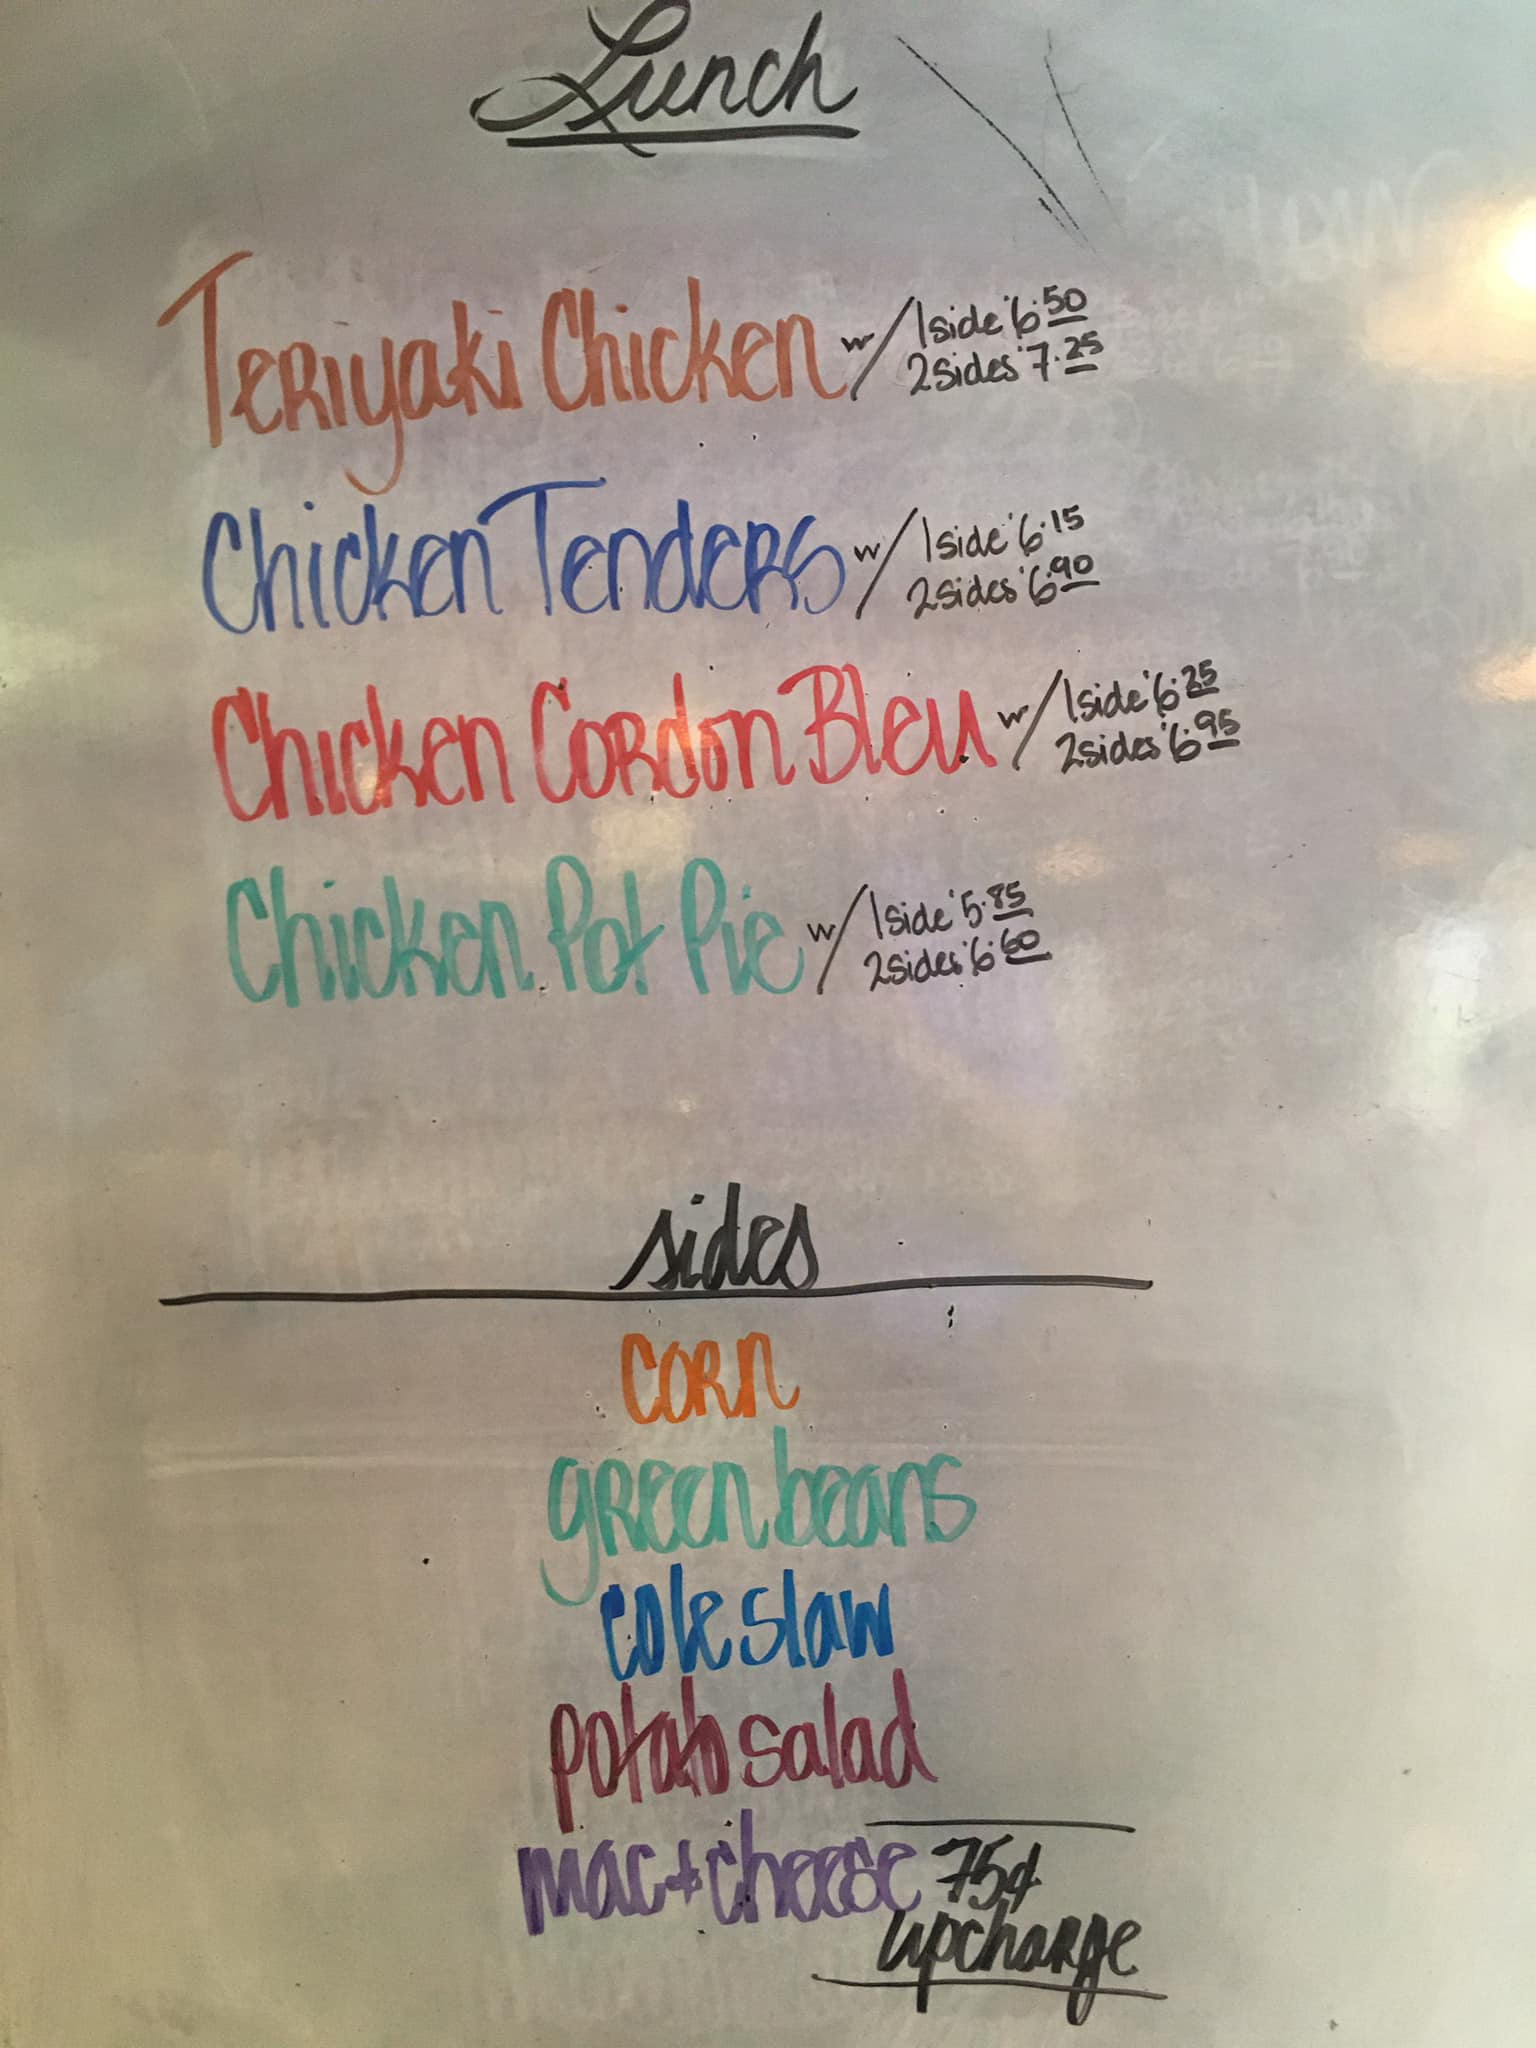 Lunch
Teriyaki Chicken w/ 1 side 6.50
2 sides 7.25
Chicken Tenders w/ 1 side 6.15
2 sides 6.90
Chicken Cordon Bleu w/ 1 side 6.25
2 sides 6.95
Chicken Pot Pie w/ 1 side 5.85
2 sides 6.60
sides
corn
green beans
cole slaw
potato salad
mac + cheese 75¢
upcharge